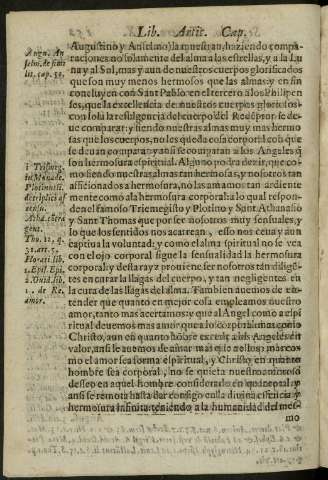 Lib. Artic. Cap.
Augustino y Anselmo) la muestran, haziendo compa-
raciones no solamente del alma a las estrellas, y a la Lu
na y al Sol, mas y aun de nuestros cuerpos glorificados
que son muy menos hermosos que las almas: y en fin
concluyen con Sant Pablo en el tercero a los Philipen
ses, que la excelencia de nuestros cuerpos gloriosos
con sola la refulgencia del cuerpo del Redēptor se de-
ue comparar: y siendo nuestras almas muy mas hermo
sas que los cuerpos, no les queda cosa corporal con que
se deuan comparar: y ansi se comparan a los Angeles q̄
son hermosura espiritual. Alguno podra dezir, que co-
mo siendo nuestras almas tan hermosas, y nosotros tan
afficionados a hermosura, no las amamos tan ardiente
mente como a la hermosura corporal: a lo qual respon-
den el famoso Trismegisto y Plotino y Sant Athanasio
y Sant Thomas que por ser nosotros muy sensuales, y
lo que los sentidos nos acarrean, esso nos ceua y aun
captiua la voluntad: y como el alma spiritual no se vea
con el ojo corporal sigue la sensualidad la hermosura
corporal: y desta rayz prouiene ser nosotros tan diligē-
tes en curar la llagas del cuerpo, y tan negligentes en
la cura de las llagas del alma. Tambien auemos de en-
tender que quanto en mejor cosa empleamos nuestro
amor, tanto mas acertamos: y que al Angel como a espi
ritual deuemos mas amor que a lo corporal: mas como
Christo, aun en quanto hombre excede a los Angeles en
valor, ansi le auemos de amar mas que a ellos: mas co-
mo el amor sea forma espiritual, y Christo en quanto
hombre sea corporal, no se quieta nuestro amoroso
desseo en aquel hombre considerado en quanto tal: y
ansi se remota hasta dar consigo en la diuina essencia y
hermosura infinita: teniendo a la humanidad del mes-
mo
Augu. An
selmi. de simi
lit. cap. 59.
i Trismeg.
Plotinus li.
Atha. cōtra
gent.
Tho. 12. q.
Horati. lib.
1. Epist. Epi.
2. Ouid. lib.
1. de Re.
amor.